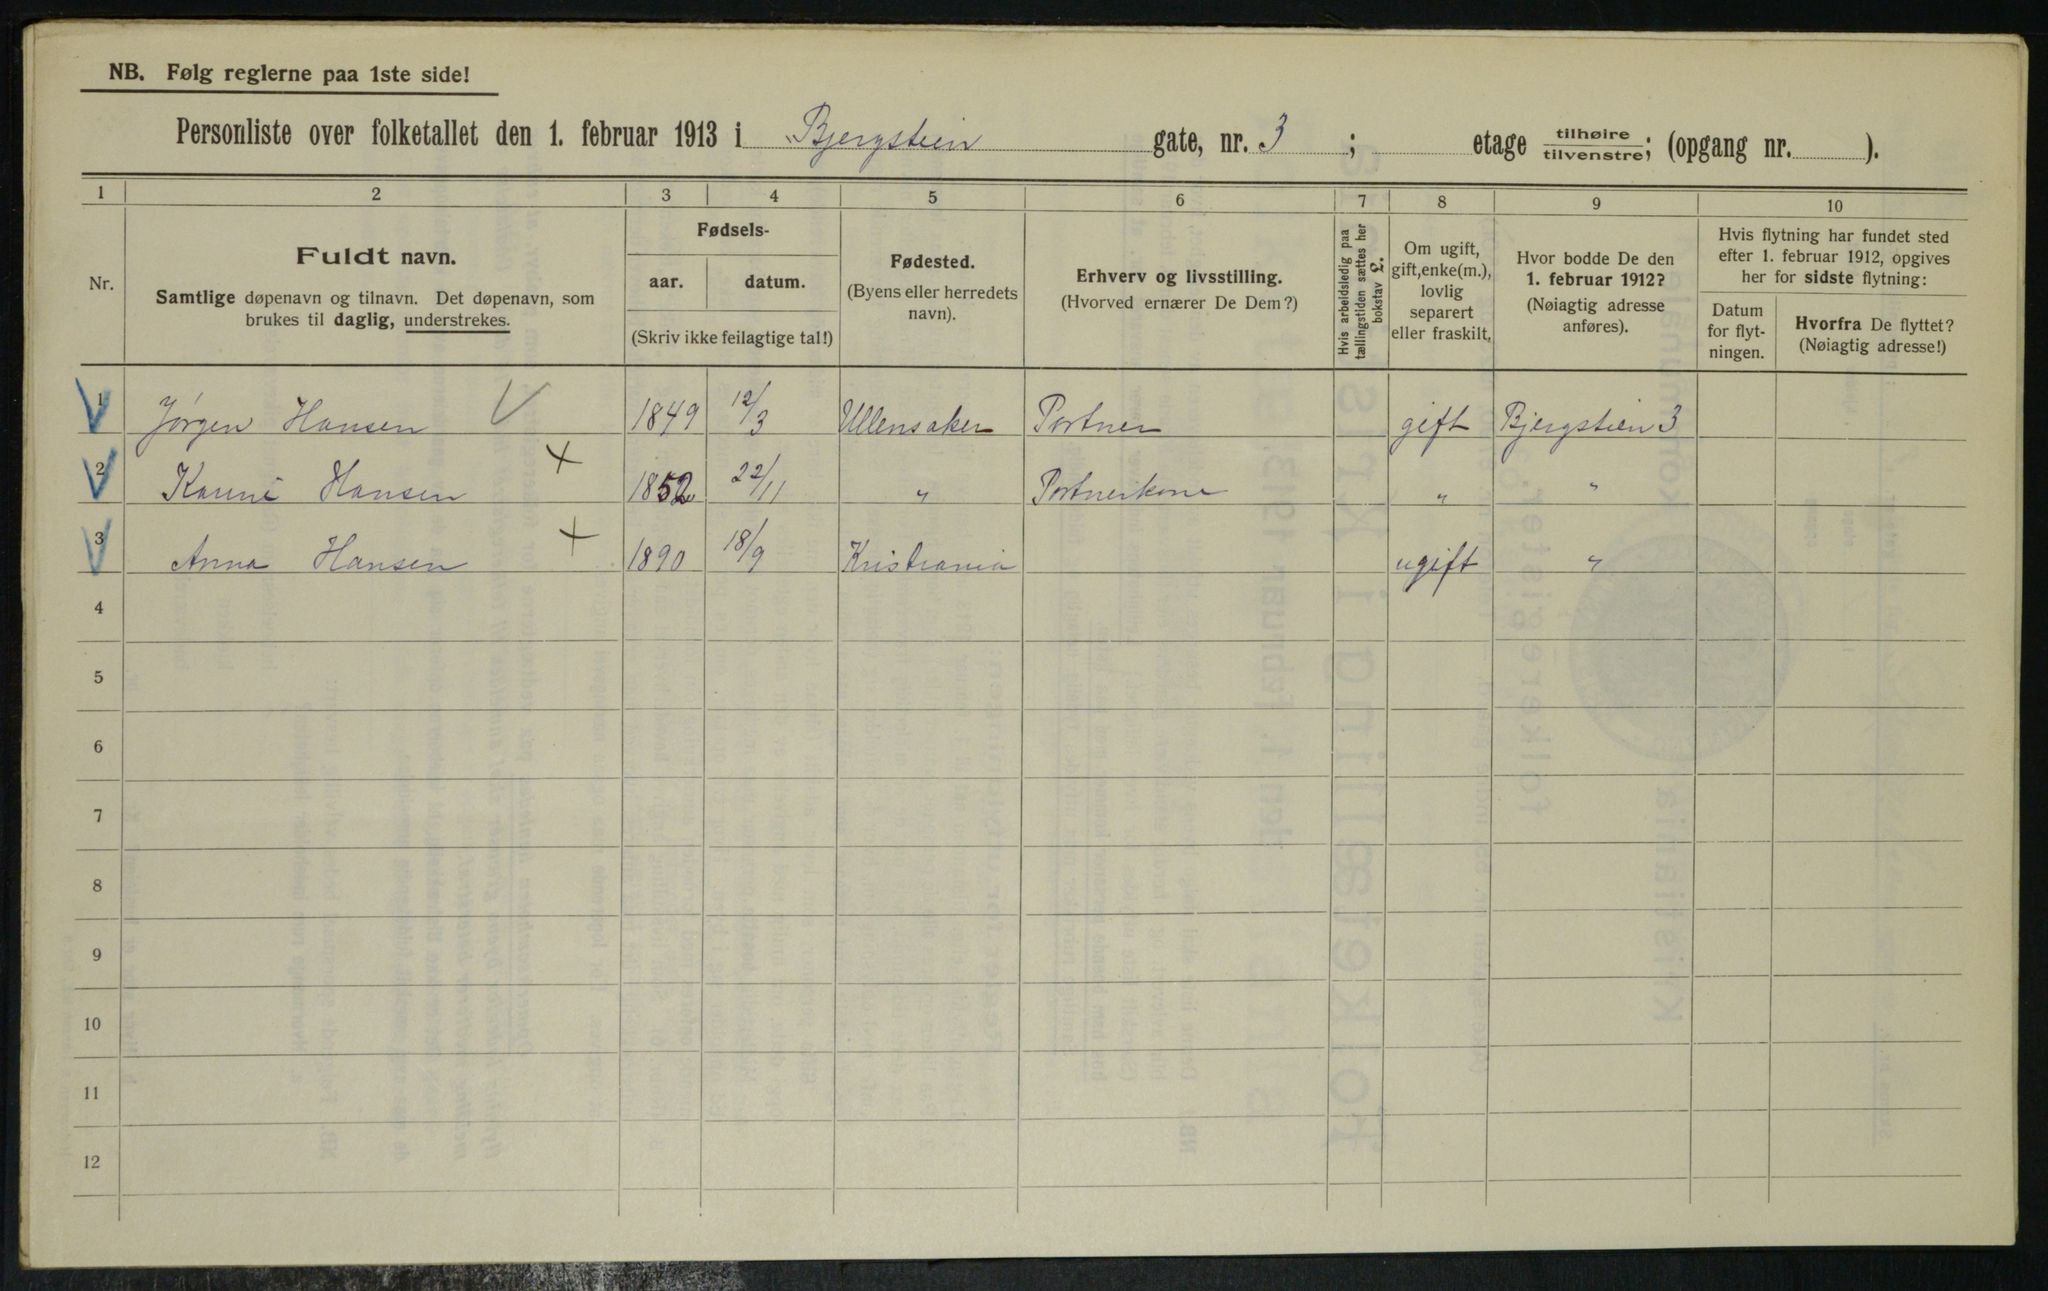 NB. Følg reglerne paa 1ste side!
Personliste over folketallet den 1. februar 1913 i Bjergstien gate, nr. 3 ; etage tilhøire tilvenstre; (opgang nr. ).
1 2 3 4 5 6 7 8 9 10
Nr.
Fuldt navn.
Samtlige døpenavn og tilnavn. Det døpenavn, som
brukes til daglig, understrekes.
Fødsels-
aar. datum.
(Skriv ikke feilagtige tal!)
Fødested.
(Byens eller herredets
navn).
Erhverv og livsstilling.
(Hvorved ernærer De Dem?)
Hvis arbeidsledig paa
tællingstiden sættes her
bokstav L.
Om ugift,
gift, enke(m.),
lovlig
separert
eller fraskilt,
Hvor bodde De den
1. februar 1912?
(Nøiagtig adresse
anføres).
Hvis flytning har fundet sted
efter 1. februar 1912, opgives
her for sidste flytning:
Datum
for flyt-
ningen.
Hvorfra De flyttet?
(Nøiagtig adresse!)
1 Jørgen Hansen 1849 12/3 Ullensaker Portner gift Bjergstien 3
2 Hansen 1852 22/11 " Portnerkone " "
3 Anna Hansen 1890 18/9 Kristiania ugift "
4
5
6
7
8
9
10
11
12